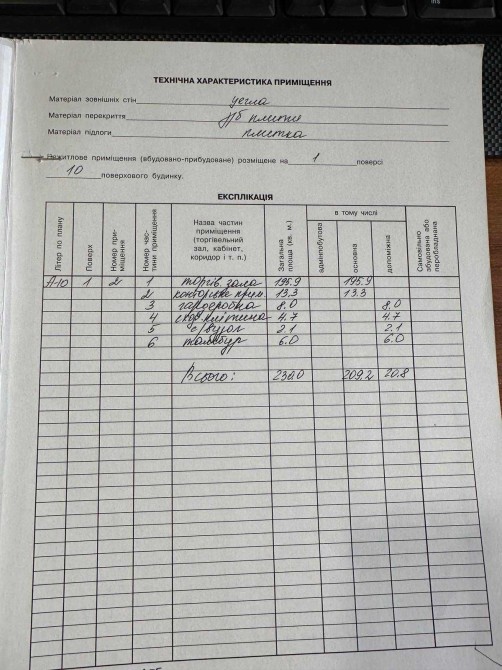 ТЕХНІЧНА ХАРАКТЕРИСТИКА ПРИМІЩЕННЯ
Матеріал зовнішніх стін цегла
Матеріал перекриття з/б плити
Матеріал підлоги плитка
Нежитлове приміщення (вбудовано-прибудоване) розміщене на 1 поверсі
10 поверхового будинку.
ЕКСПЛІКАЦІЯ
Літер по плану
Поверх
Номер при-
міщення
Номер час-
тини приміщення
Назва частин
приміщення
(торгівельний
зал, кабінет,
коридор і т. п.)
Загальна
площа (кв. м.)
в тому числі
адмінпобутова
основна
допоміжна
Самовільно
збудована або
переобладнана
А-10 1 2 1 торгів. зала 195.9 195.9
2 конторське прим. 13.3 13.3
3 гардеробна 8.0 8.0
4 клітина 4.7 4.7
5 с/вузол 2.1 2.1
6 тамбур 6.0 6.0
Всього: 230.0 209.2 20.8